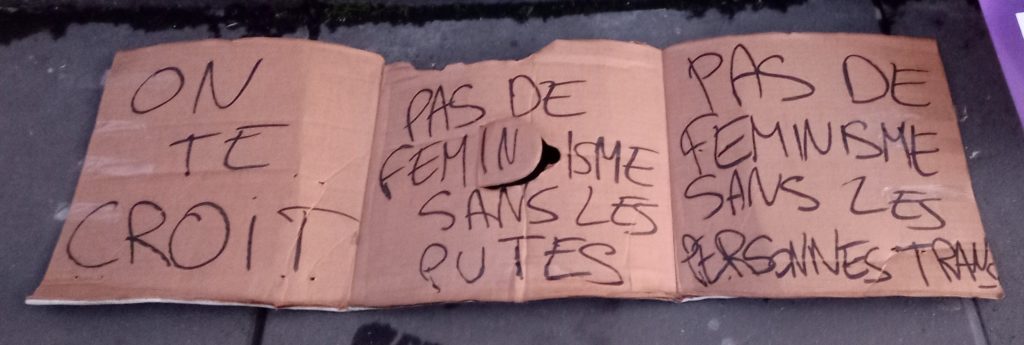 ON
TE
CROiT
PAS DE
FEMINISME
SANS LES
PUTES
PAS DE
FEMINISME
SANS LES
PERSONNES TRANS